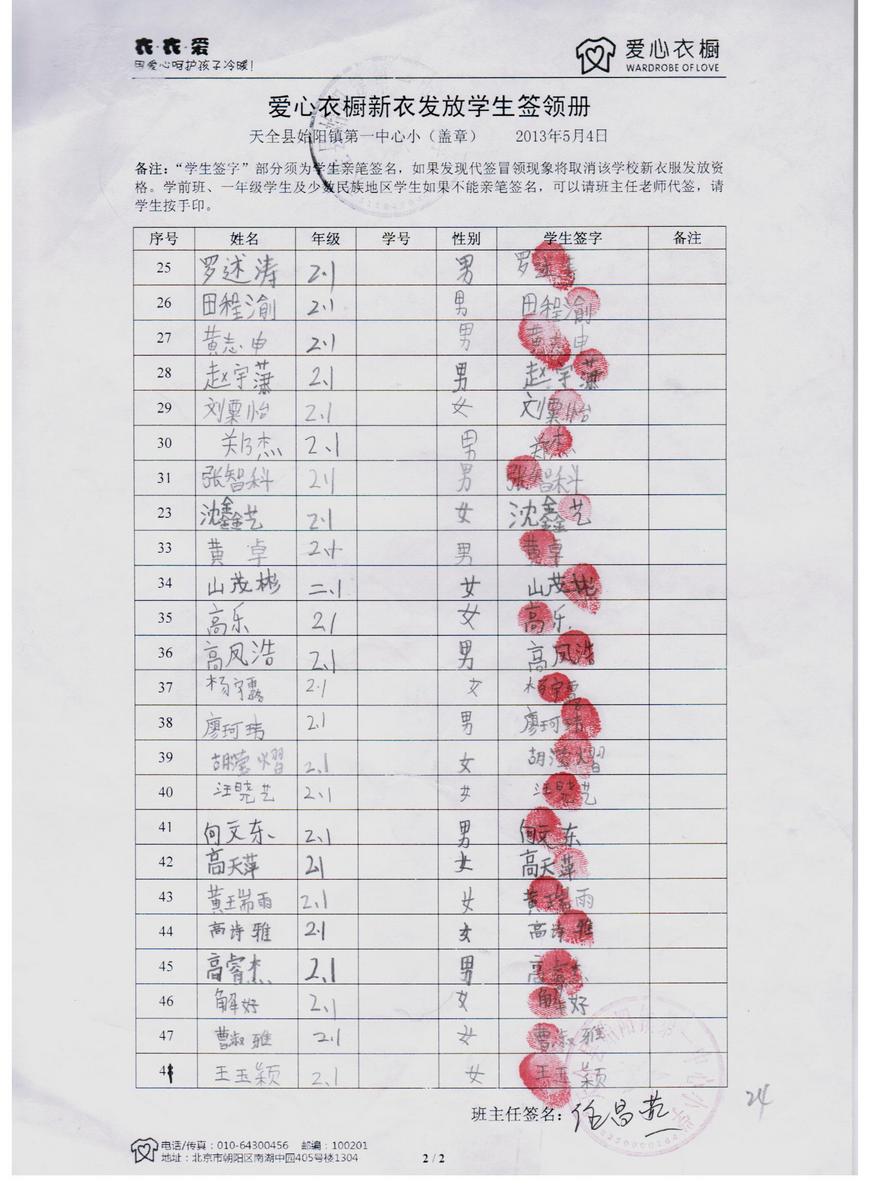 衣·衣·爱
因爱心呵护孩子冷暖！
爱心衣橱
WARDROBE OF LOVE
爱心衣橱新衣发放学生签领册
天全县始阳镇第一中心小（盖章） 2013年5月4日
备注：“学生签字”部分须为学生亲笔签名，如果发现代签冒领现象将取消该学校新衣服发放资
格。学前班、一年级学生及少数民族地区学生如果不能亲笔签名，可以请班主任老师代签，请
学生按手印。
序号 姓名 年级 学号 性别 学生签字 备注
25 罗述涛 2.1 男 罗述涛
26 田程渝 2.1 男 田程渝
27 黄志申 2.1 男 黄志申
28 赵宇潇 2.1 男 赵宇潇
29 刘粟怡 2.1 女 刘粟怡
30 郑杰 2.1 男 郑杰
31 张智科 2.1 男 张智科
23 沈鑫艺 2.1 女 沈鑫艺
33 黄卓 2.1 男 黄卓
34 山茂彬 二.1 女 山茂彬
35 高乐 2.1 女 高乐
36 高凤浩 2.1 男 高凤浩
37 杨宇露 2.1 女 杨宇露
38 廖珂玮 2.1 男 廖珂玮
39 胡滢熠 2.1 女 胡滢熠
40 汪晓艺 2.1 女 汪晓艺
41 向文东 2.1 男 向文东
42 高天萍 2.1 女 高天萍
43 黄瑞雨 2.1 女 黄瑞雨
44 高诗雅 2.1 女 高诗雅
45 高睿杰 2.1 男 高睿杰
46 解好 2.1 女 解好
47 曹淑雅 2.1 女 曹淑雅
48 王玉颖 2.1 女 王玉颖
班主任签名：
24
电话/传真：010-64300456 邮编：100201
地址：北京市朝阳区南湖中园405号楼1304
2 / 2